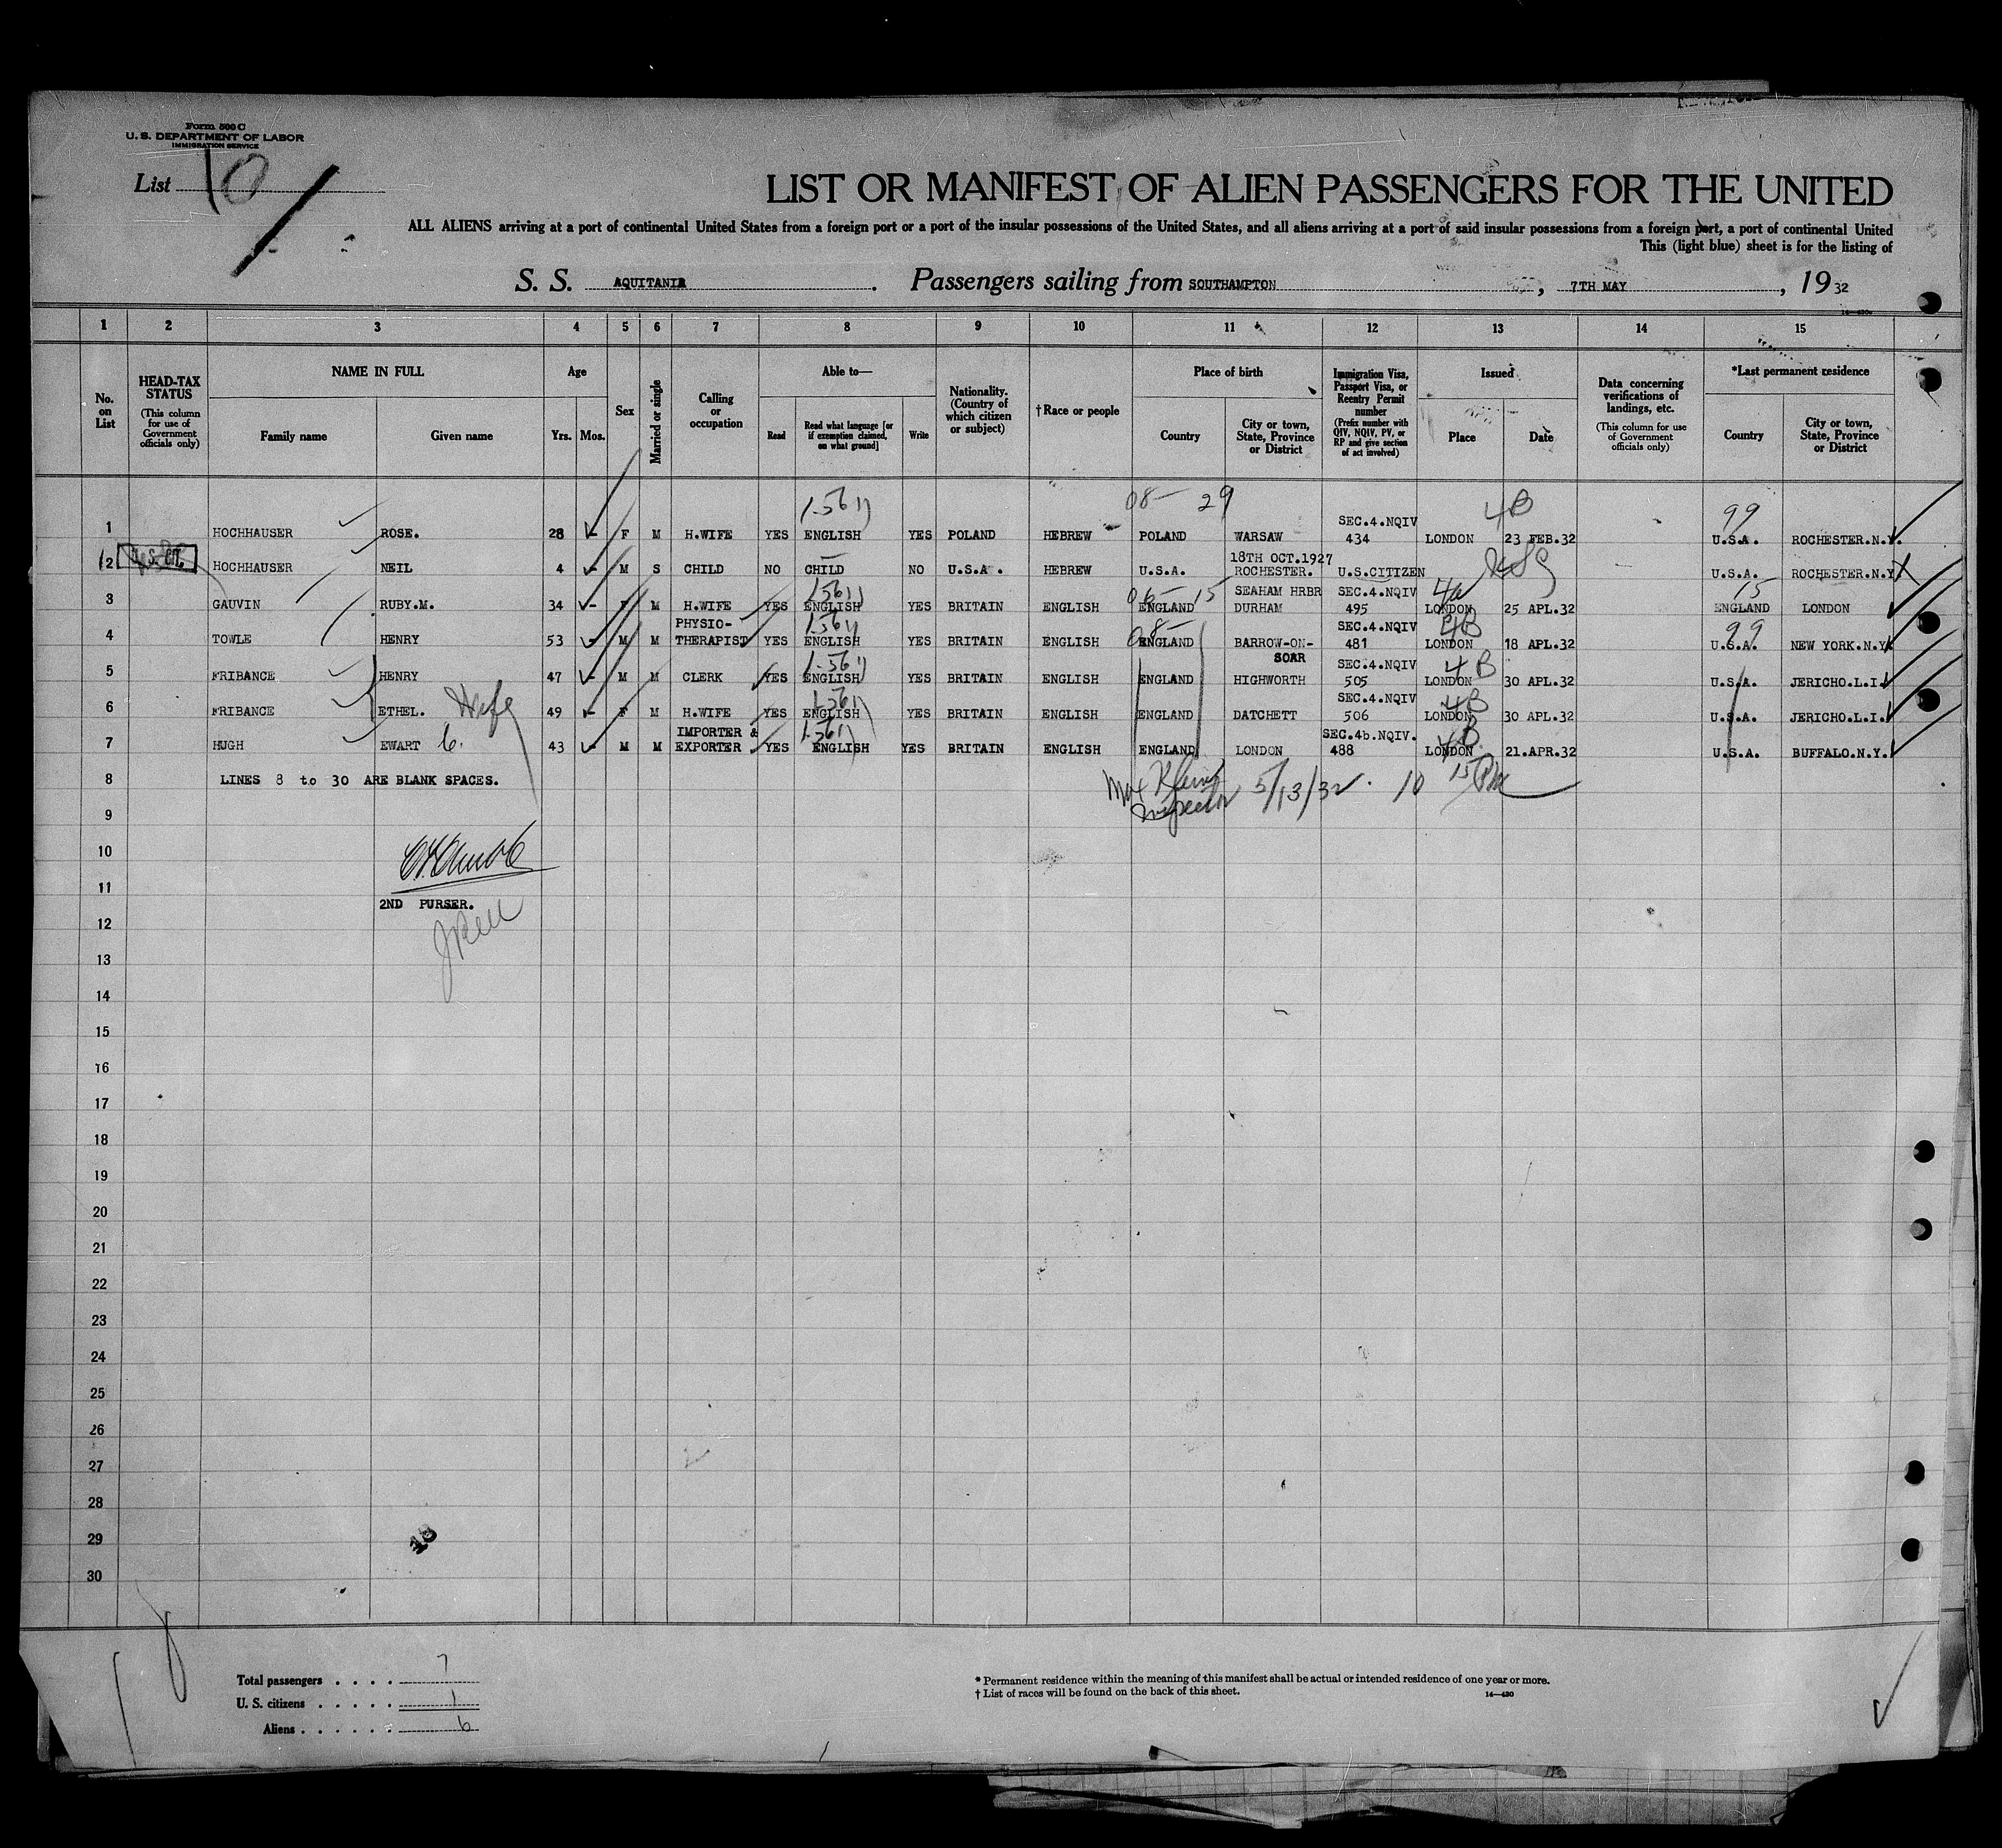 Form 500 C
U. S. DEPARTMENT OF LABOR
IMMIGRATION SERVICE
List 10
LIST OR MANIFEST OF ALIEN PASSENGERS FOR THE UNITED
ALL ALIENS arriving at a port of continental United States from a foreign port or a port of the insular possessions of the United States, and all aliens arriving at a port of said insular possessions from a foreign port, a port of continental United
This (light blue) sheet is for the listing of
S. S. AQUITANIA. Passengers sailing from SOUTHAMPTON, 7TH MAY, 1932
14—430
1 2 3 4 5 6 7 8 9 10 11 12 13 14 15
No. on List
HEAD-TAX STATUS (This column for use of Government officials only)
NAME IN FULL
Family name
Given name
Age
Yrs. Mos.
Sex
Married or single
Calling or occupation
Able to—
Read
Read what language [or if exemption claimed, on what ground]
Write
Nationality. (Country of which citizen or subject)
† Race or people
Place of birth
Country
City or town, State, Province or District
Immigration Visa, Passport Visa, or Reentry Permit number (Prefix number with QIV, NQIV, PV, or RP and give section of act involved)
Issued
Place
Date
Data concerning verifications of landings, etc. (This column for use of Government officials only)
*Last permanent residence
Country
City or town, State, Province or District
08— 29 4B 99
1 HOCHHAUSER ROSE. 28 - F M H.WIFE YES ENGLISH YES POLAND HEBREW POLAND WARSAW SEC.4.NQIV 434 LONDON 23 FEB.32 U.S.A. ROCHESTER.N.Y.
2 U.S. CIT. HOCHHAUSER NEIL 4 - M S CHILD NO CHILD NO U.S.A. HEBREW U.S.A. 18TH OCT.1927 ROCHESTER. U.S.CITIZEN U.S.A. ROCHESTER.N.Y.
3 GAUVIN RUBY.M. 34 - F M H.WIFE YES ENGLISH YES BRITAIN ENGLISH ENGLAND SEAHAM HRBR DURHAM SEC.4.NQIV 495 LONDON 25 APL.32 15 ENGLAND LONDON
4 TOWLE HENRY 53 - M M PHYSIO-THERAPIST YES ENGLISH YES BRITAIN ENGLISH ENGLAND BARROW-ON-SOAR SEC.4.NQIV 481 4B LONDON 18 APL.32 99 U.S.A. NEW YORK.N.Y.
5 FRIBANCE HENRY 47 - M M CLERK YES ENGLISH YES BRITAIN ENGLISH ENGLAND HIGHWORTH SEC.4.NQIV 505 4B LONDON 30 APL.32 U.S.A. JERICHO.L.I.
6 FRIBANCE ETHEL. Wife 49 - F M H.WIFE YES ENGLISH YES BRITAIN ENGLISH ENGLAND DATCHETT SEC.4.NQIV 506 4B LONDON 30 APL.32 U.S.A. JERICHO.L.I.
7 HUGH EWART C. 43 - M M IMPORTER & EXPORTER YES ENGLISH YES BRITAIN ENGLISH ENGLAND LONDON SEC.4b.NQIV. 488 4B LONDON. 21.APR.32 U.S.A. BUFFALO.N.Y.
8 LINES 8 to 30 ARE BLANK SPACES.
Inspector 5/13/32. 10
9
10
11
2ND PURSER.
12
13
14
15
16
17
18
19
20
21
22
23
24
25
26
27
28
29
30
Total passengers . . . . 7
U. S. citizens . . . . . 1
Aliens . . . . . . 6
* Permanent residence within the meaning of this manifest shall be actual or intended residence of one year or more.
† List of races will be found on the back of this sheet.
14—430